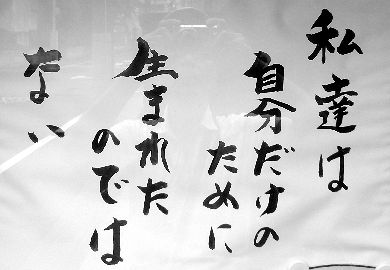 私達は
自分だけの
ために
生まれた
のでは
ない